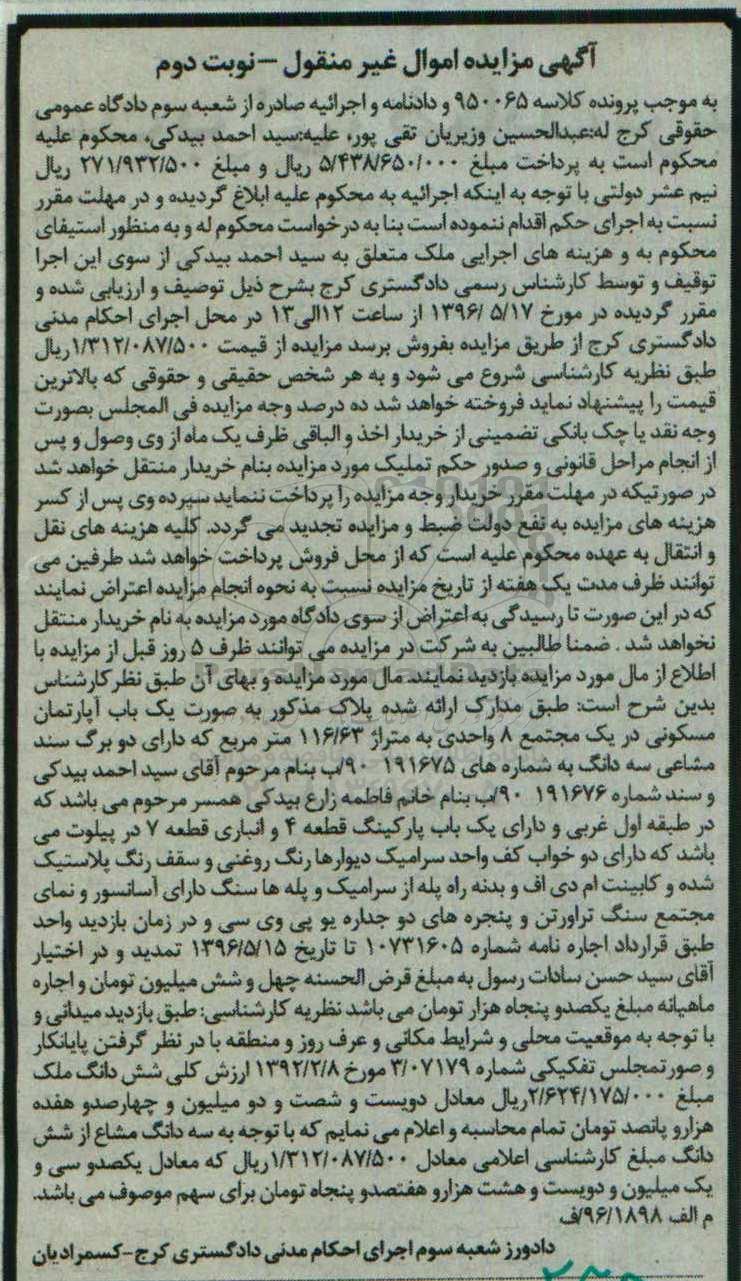 آگهی مزایده اموال غیر منقول – نوبت دوم
به موجب پرونده کلاسه ۹۵۰۰۶۵ و دادنامه و اجرائیه صادره از شعبه سوم دادگاه عمومی
حقوقی کرج له:عبدالحسین وزیریان تقی پور، علیه:سید احمد بیدکی، محکوم علیه
محکوم است به پرداخت مبلغ ۵/۴۳۸/۶۵۰/۰۰۰ ریال و مبلغ ۲۷۱/۹۳۲/۵۰۰ ریال
نیم عشر دولتی با توجه به اینکه اجرائیه به محکوم علیه ابلاغ گردیده و در مهلت مقرر
نسبت به اجرای حکم اقدام ننموده است بنا به درخواست محکوم له و به منظور استیفای
محکوم به و هزینه های اجرایی ملک متعلق به سید احمد بیدکی از سوی این اجرا
توقیف و توسط کارشناس رسمی دادگستری کرج بشرح ذیل توصیف و ارزیابی شده و
مقرر گردیده در مورخ ۵/۱۷ /۱۳۹۶ از ساعت ۱۲الی۱۳ در محل اجرای احکام مدنی
دادگستری کرج از طریق مزایده بفروش برسد مزایده از قیمت ۱/۳۱۲/۰۸۷/۵۰۰ریال
طبق نظریه کارشناسی شروع می شود و به هر شخص حقیقی و حقوقی که بالاترین
قیمت را پیشنهاد نماید فروخته خواهد شد ده درصد وجه مزایده فی المجلس بصورت
وجه نقد یا چک بانکی تضمینی از خریدار اخذ و الباقی ظرف یک ماه از وی وصول و پس
از انجام مراحل قانونی و صدور حکم تملیک مورد مزایده بنام خریدار منتقل خواهد شد
در صورتیکه در مهلت مقرر خریدار وجه مزایده را پرداخت ننماید سپرده وی پس از کسر
هزینه های مزایده به نفع دولت ضبط و مزایده تجدید می گردد. کلیه هزینه های نقل
و انتقال به عهده محکوم علیه است که از محل فروش پرداخت خواهد شد طرفین می
توانند ظرف مدت یک هفته از تاریخ مزایده نسبت به نحوه انجام مزایده اعتراض نمایند
که در این صورت تا رسیدگی به اعتراض از سوی دادگاه مورد مزایده به نام خریدار منتقل
نخواهد شد . ضمنا طالبین به شرکت در مزایده می توانند ظرف ۵ روز قبل از مزایده با
اطلاع از مال مورد مزایده بازدید نمایند. مال مورد مزایده و بهای آن طبق نظر کارشناس
بدین شرح است: طبق مدارک ارائه شده پلاک مذکور به صورت یک باب آپارتمان
مسکونی در یک مجتمع ۸ واحدی به متراژ ۱۱۶/۶۳ متر مربع که دارای دو برگ سند
مشاعی سه دانگ به شماره های ۱۹۱۶۷۵ ۹۰/ب بنام مرحوم آقای سید احمد بیدکی
و سند شماره ۱۹۱۶۷۶ ۹۰/ب بنام خانم فاطمه زارع بیدکی همسر مرحوم می باشد که
در طبقه اول غربی و دارای یک باب پارکینگ قطعه ۴ و انباری قطعه ۷ در پیلوت می
باشد که دارای دو خواب کف واحد سرامیک دیوارها رنگ روغنی و سقف رنگ پلاستیک
شده و کابینت ام دی اف و بدنه راه پله از سرامیک و پله ها سنگ دارای آسانسور و نمای
مجتمع سنگ تراورتن و پنجره های دو جداره یو پی وی سی و در زمان بازدید واحد
طبق قرارداد اجاره نامه شماره ۱۰۷۳۱۶۰۵ تا تاریخ ۱۳۹۶/۵/۱۵ تمدید و در اختیار
آقای سید حسن سادات رسول به مبلغ قرض الحسنه چهل و شش میلیون تومان و اجاره
ماهیانه مبلغ یکصدو پنجاه هزار تومان می باشد نظریه کارشناسی: طبق بازدید میدانی و
با توجه به موقعیت محلی و شرایط مکانی و عرف روز و منطقه با در نظر گرفتن پایانکار
و صورتمجلس تفکیکی شماره ۳/۰۷۱۷۹ مورخ ۱۳۹۲/۲/۸ ارزش کلی شش دانگ ملک
مبلغ ۲/۶۲۴/۱۷۵/۰۰۰ریال معادل دویست و شصت و دو میلیون و چهارصدو هفده
هزارو پانصد تومان تمام محاسبه و اعلام می نمایم که با توجه به سه دانگ مشاع از شش
دانگ مبلغ کارشناسی اعلامی معادل ۱/۳۱۲/۰۸۷/۵۰۰ریال که معادل یکصدو سی و
یک میلیون و دویست و هشت هزارو هفتصدو پنجاه تومان برای سهم موصوف می باشد.
م الف ۹۶/۱۸۹۸/ف
دادورز شعبه سوم اجرای احکام مدنی دادگستری کرج-کسمرادیان